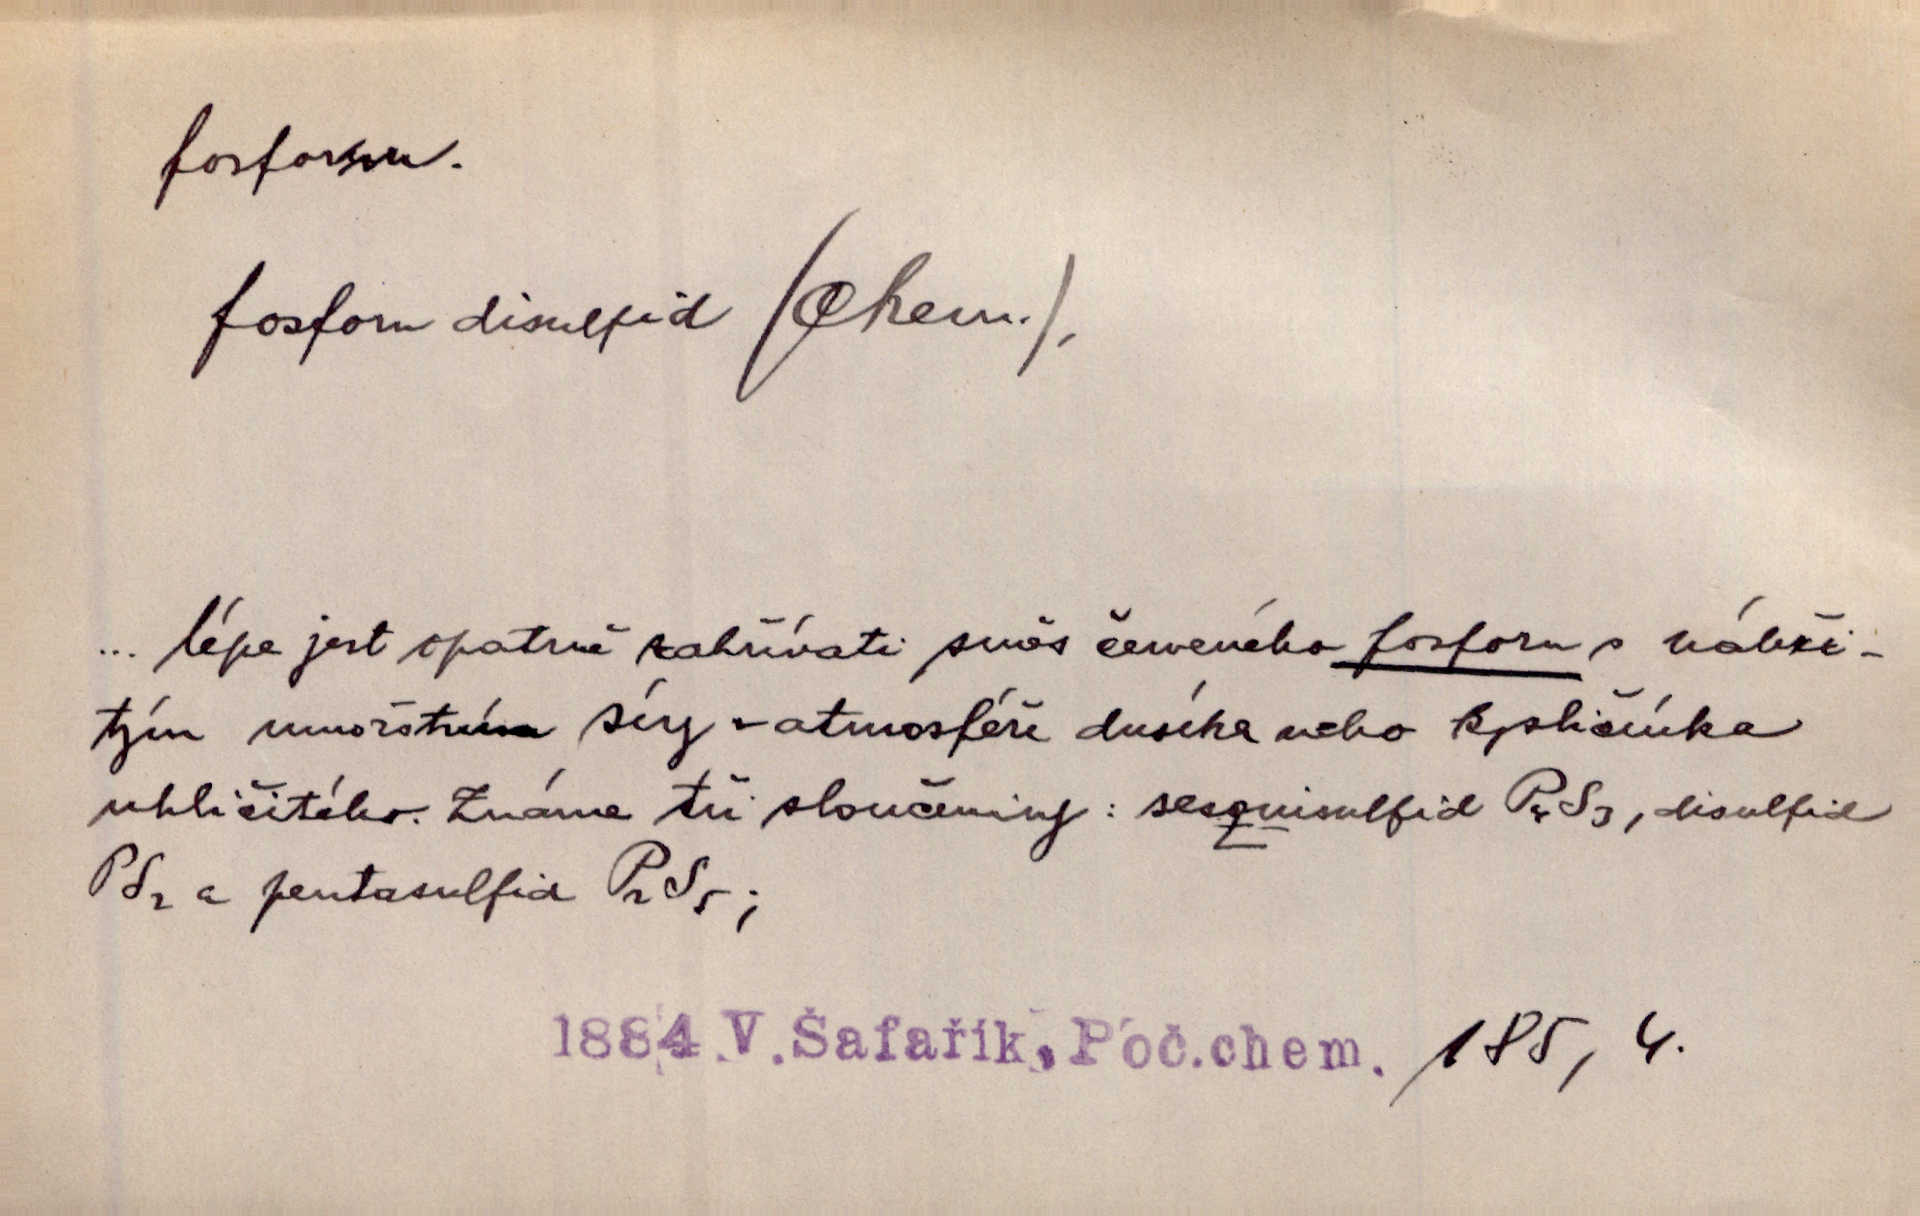 fosforu.
fosforu disulfid (Chem.),
... lépe jest opatrně zahřívati směs červeného fosforu s náleži-
tým množstvím síry v atmosféře dusíka nebo kysličníka
uhličitého. Známe tři sloučeniny: sesquisulfid P₄S₃, disulfid
PS₂ a pentasulfid P₂S₅;
1884 V. Šafařík, Poč.chem. 185, 4.